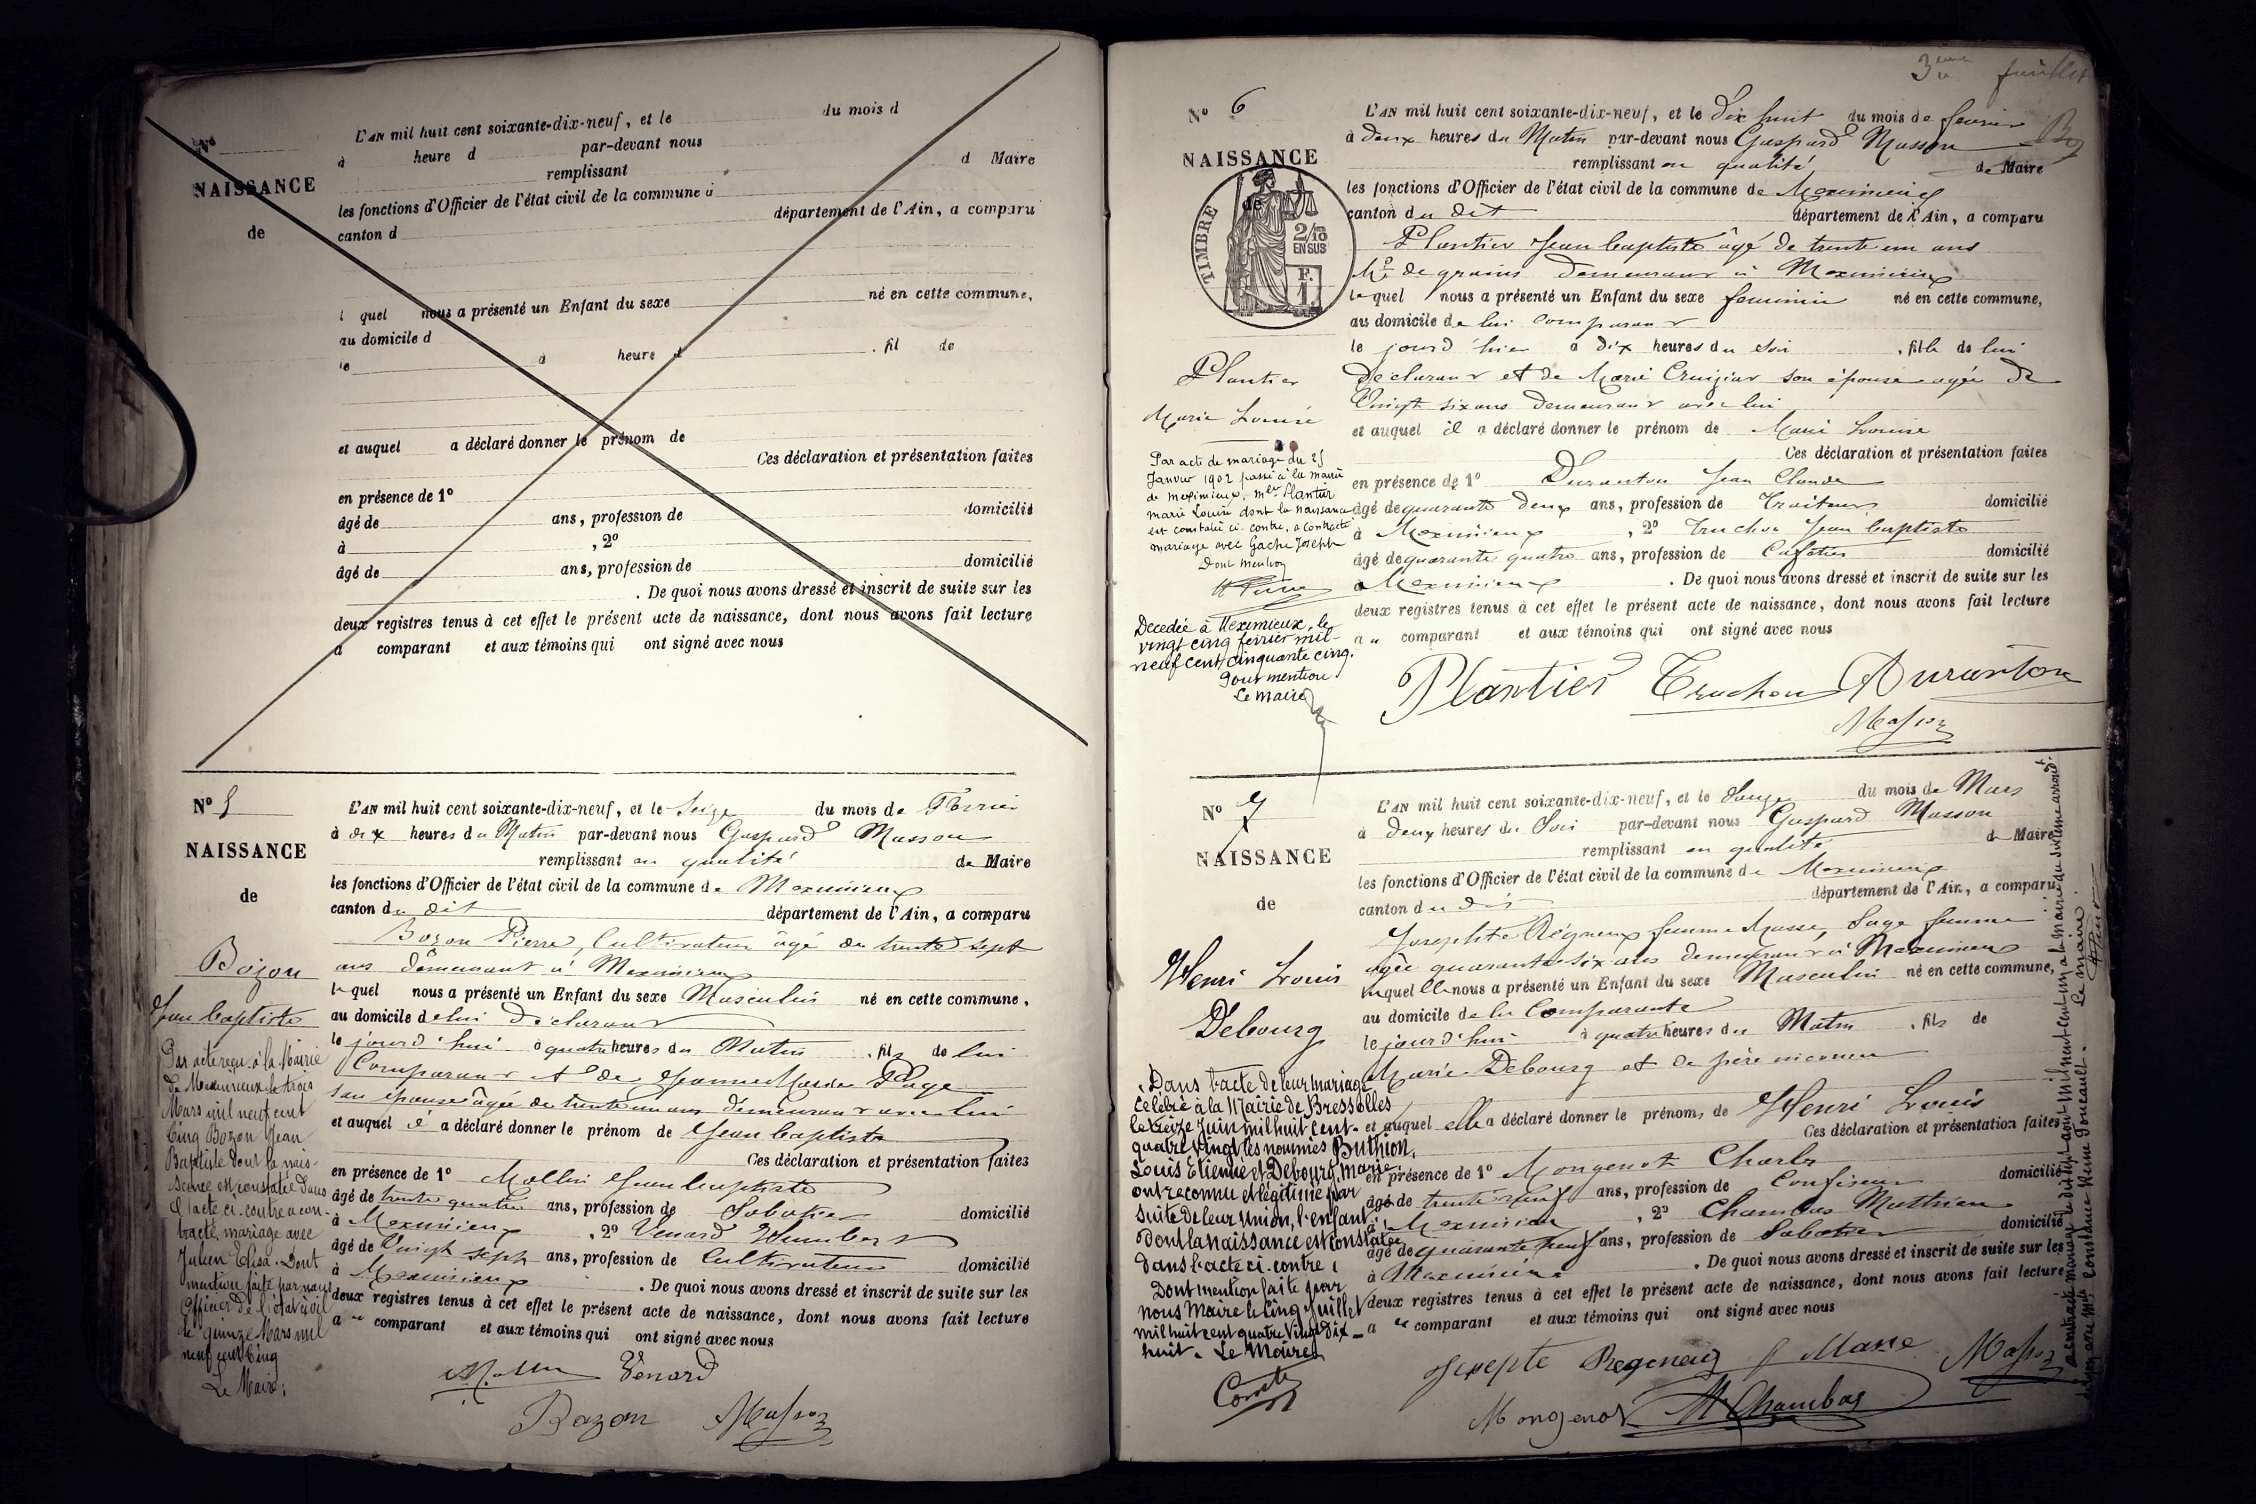 N°
NAISSANCE
de
L'AN mil huit cent soixante-dix-neuf, et le du mois d
à heure d par-devant nous
remplissant d Maire
les fonctions d'Officier de l'état civil de la commune d
canton d département de l'Ain, a comparu
l quel nous a présenté un Enfant du sexe né en cette commune,
au domicile d
le à heure d . fil de
et auquel a déclaré donner le prénom de
Ces déclaration et présentation faites
en présence de 1°
âgé de ans, profession de domicilié
à , 2°
âgé de ans, profession de domicilié
. De quoi nous avons dressé et inscrit de suite sur les
deux registres tenus à cet effet le présent acte de naissance, dont nous avons fait lecture
a comparant et aux témoins qui ont signé avec nous
N° 5
NAISSANCE
de
Bozon
Jean Baptiste
Par acte reçu à la Mairie
de Meximieux le trois
Mars mil neuf cent
cinq Bozon Jean
Baptiste dont la nais-
sance est constatée dans
l'acte ci-contre a con-
tracté mariage avec
Julien Elisa. Dont
mention faite par nous
Officier de l'état civil
le quinze Mars mil
neuf cent cinq
Le Maire:
L'AN mil huit cent soixante-dix-neuf, et le Seize du mois de Février
à dix heures du Matin par-devant nous Gaspard Masson
remplissant en qualité de Maire
les fonctions d'Officier de l'état civil de la commune de Meximieux
canton du dit département de l'Ain, a comparu
Bozon Pierre, Cultivateur âgé de trente sept
ans demeurant à Meximieux
lequel nous a présenté un Enfant du sexe Masculin né en cette commune,
au domicile de lui déclarant
le jourd'hui à quatre heures du Matin . fils de lui
Comparant et de Jeanne Marie Page
son épouse âgée de trente un ans demeurant avec lui
et auquel il a déclaré donner le prénom de Jean Baptiste
Ces déclaration et présentation faites
en présence de 1° Mollin Jean Baptiste
âgé de trente quatre ans, profession de Sabotier domicilié
à Meximieux , 2° Venard Humbert
âgé de Vingt sept ans, profession de Cultivateur domicilié
à Meximieux . De quoi nous avons dressé et inscrit de suite sur les
deux registres tenus à cet effet le présent acte de naissance, dont nous avons fait lecture
a comparant et aux témoins qui ont signé avec nous
Venard
Bozon Masson
3eme feuillet
N° 6
NAISSANCE
de
TIMBRE
2/10
EN SUS
Plantier
Marie Louise
Par acte de mariage du 25
Janvier 1902 passé à la mairie
de Meximieux, Mlle Plantier
Marie Louise dont la naissance
est constatée ci-contre, a contracté
mariage avec Gache Joseph
Dont mention
Décédée à Meximieux, le
vingt cinq février mil-
neuf cent cinquante cinq.
Pour mention
Le Maire
L'AN mil huit cent soixante-dix-neuf, et le dix huit du mois de février
à deux heures du Matin par-devant nous Gaspard Masson
remplissant en qualité de Maire
les fonctions d'Officier de l'état civil de la commune de Meximieux
canton du dit département de l'Ain, a comparu
Plantier Jean Baptiste âgé de trente un ans
Md de grains demeurant à Meximieux
lequel nous a présenté un Enfant du sexe feminin né en cette commune,
au domicile de lui comparant
le jourd'hier à dix heures du Soir . fille de lui
déclarant et de Marie son épouse agée de
Vingt six ans demeurant avec lui
et auquel il a déclaré donner le prénom de Marie Louise
Ces déclaration et présentation faites
en présence de 1° Duranton Jean Claude
âgé de quarante deux ans, profession de Traiteur domicilié
à Meximieux , 2° Truchon Jean Baptiste
âgé de quarante quatre ans, profession de Cafetier domicilié
à Meximieux . De quoi nous avons dressé et inscrit de suite sur les
deux registres tenus à cet effet le présent acte de naissance, dont nous avons fait lecture
a u comparant et aux témoins qui ont signé avec nous
Plantier Truchon Duranton
Masson
N° 7
NAISSANCE
de
Henri Louis
Debourg
Dans l'acte de leur mariage
célébré à la Mairie de Bressolles
le treize Juin mil huit cent-
quatre vingt les nommés Buthion,
Louis Etienne et Debourg, Marie,
ont reconnu et légitimé par
suite de leur union, l'enfant
dont la naissance est constatée
dans l'acte ci-contre:
Dont mention faite par
nous Maire le Cinq Juillet
mil huit cent quatre Vingt dix-
huit. Le Maire
L'AN mil huit cent soixante-dix-neuf, et le douze du mois de Mars
à deux heures du Soir par-devant nous Gaspard Masson
remplissant en qualité de Maire
les fonctions d'Officier de l'état civil de la commune de Meximieux
canton du dit département de l'Ain, a comparu
Josephte Régneux femme Masse, Sage femme
agée quarante six ans demeurant à Meximieux
laquelle nous a présenté un Enfant du sexe Masculin né en cette commune,
au domicile de la Comparante
le jourd'hui à quatre heures du Matin . fils de
Marie Debourg et de père inconnu
et auquel elle a déclaré donner le prénom, de Henri Louis
Ces déclaration et présentation faites
en présence de 1° Mongenot Charles
âgé de trente neuf ans, profession de Confiseur domicilié
à Meximieux , 2° Chambas Mathieu
âgé de quarante neuf ans, profession de Sabotier domicilié
à Meximieux . De quoi nous avons dressé et inscrit de suite sur les
deux registres tenus à cet effet le présent acte de naissance, dont nous avons fait lecture
a comparant et aux témoins qui ont signé avec nous
Masson
Mongenot Chambas